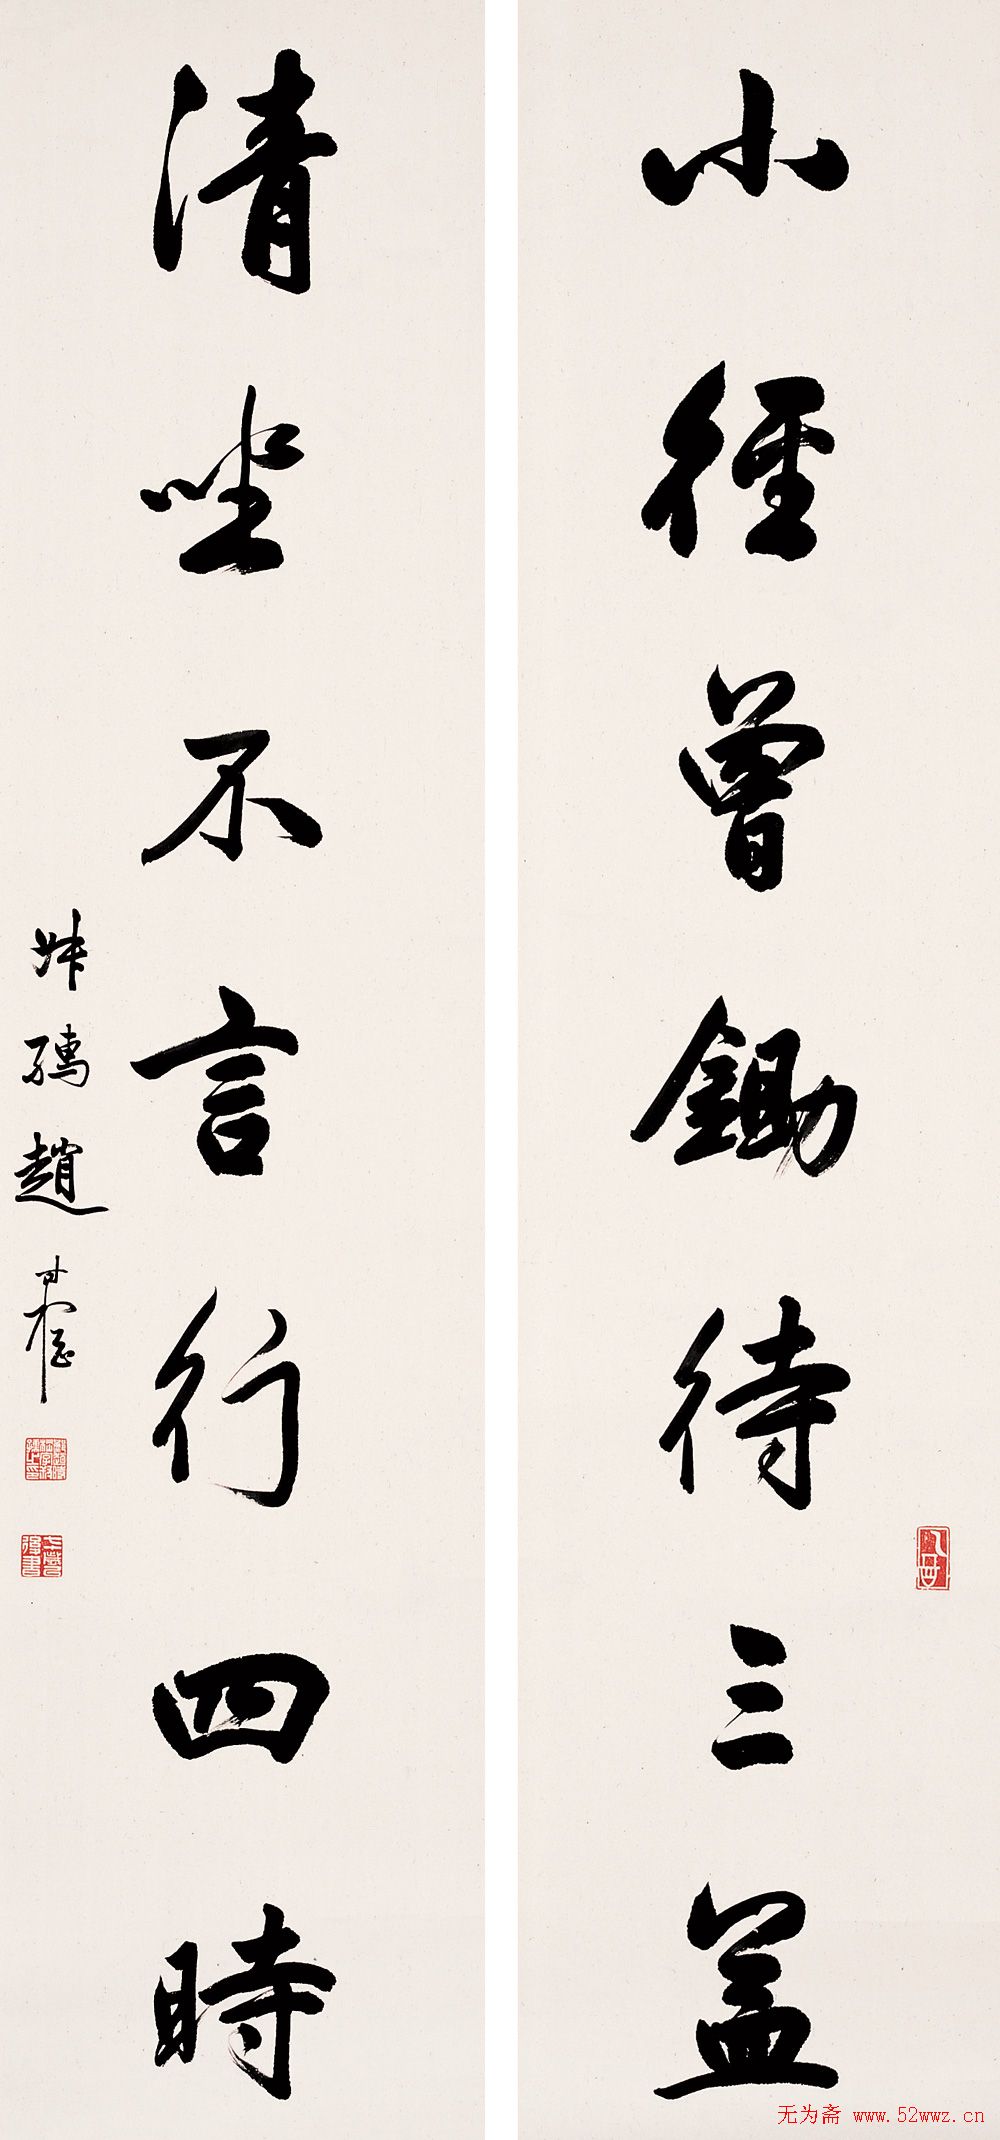 小徑曾鋤待三益
清坐不言行四時
叔孺趙時棡
无为斋 www.52wwz.cn